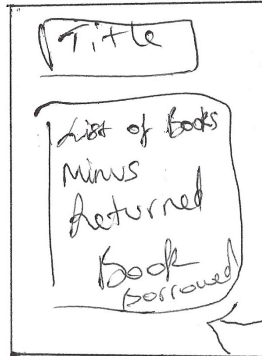 Title
List of Books
Minus
Returned
Book
Borrowed